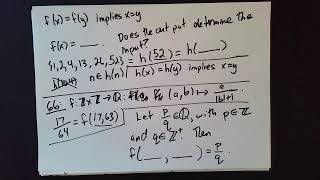 f(x)=f(y) implies x=y
f(x) = ___. Does the output determine the input?
{1,2,4,13,26,52} = h(52) = h(___)
n ∈ h(n) h(x) = h(y) implies x=y
66. f: ℤ×ℤ → ℚ: (a,b) ↦ a/(|b|+1)
17/64 = f(17,63) Let p/q ∈ ℚ, with p∈ℤ
and q∈ℤ⁺. Then
f(___, ___) = p/q.